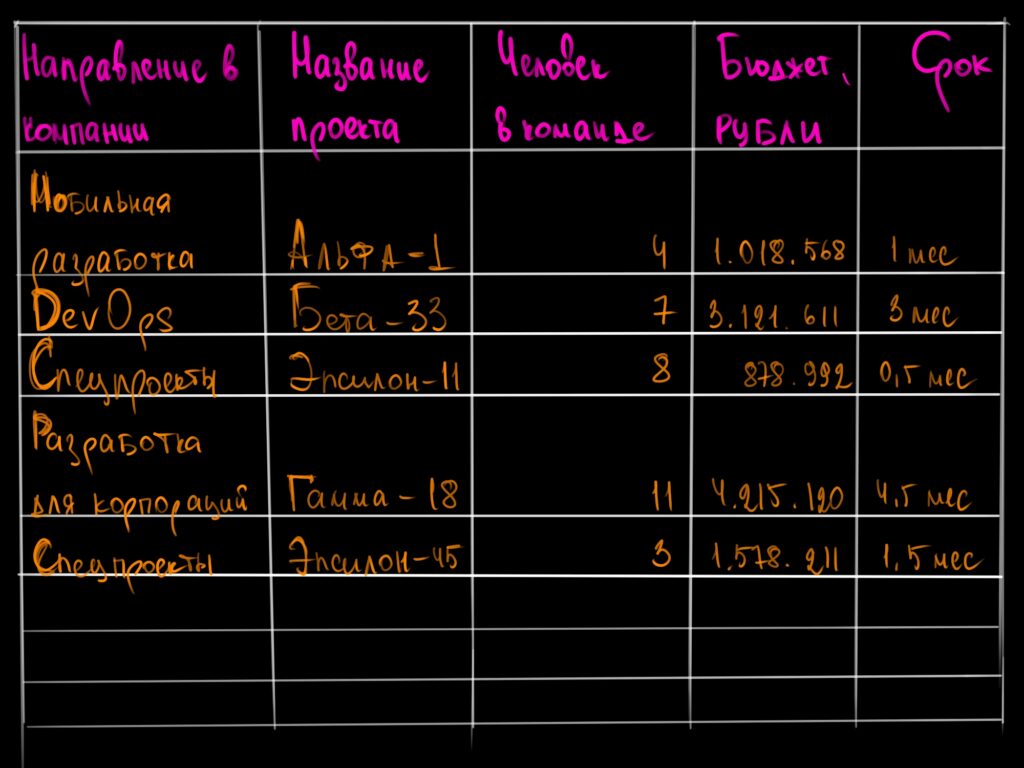 Направление в Название Человек Бюджет, Срок
компании проекта в команде РУБЛИ
Мобильная
разработка Альфа-1 4 1.018.568 1 мес
DevOps Бета-33 7 3.121.611 3 мес
Спецпроекты Эпсилон-11 8 878.992 0,5 мес
Разработка
для корпораций Гамма-18 11 4.215.120 4,5 мес
Спецпроекты Эпсилон-45 3 1.578.211 1,5 мес